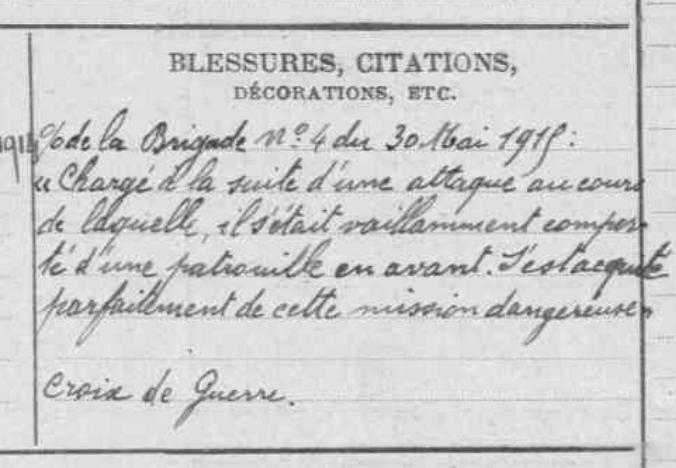 BLESSURES, CITATIONS,
DÉCORATIONS, ETC.
de la Brigade Nº 4 du 30 Mai 1915 :
"Chargé à la suite d'une attaque au cours
de laquelle, il s'était vaillamment compor-
té d'une patrouille en avant. S'est acquitté
parfaitement de cette mission dangereuse"
Croix de Guerre.